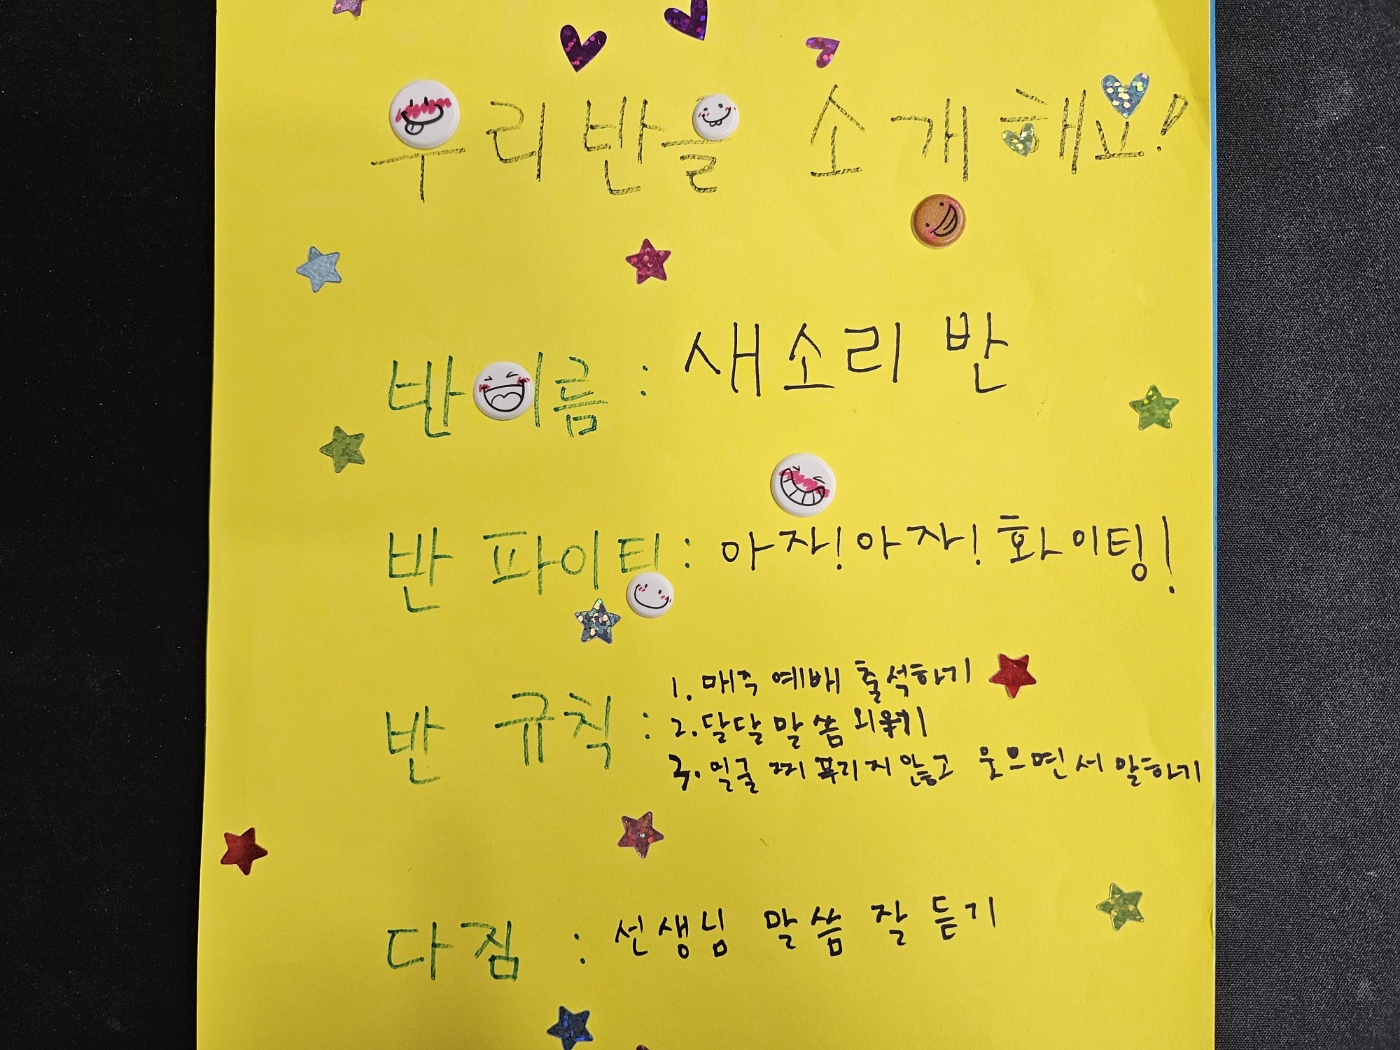 우리반을 소개해요!
반이름 : 새소리 반
반 파이티 : 아자! 아자! 화이팅!
반 규칙 : 1. 매주 예배 출석하기
2. 달달 말씀 외우기
3. 얼굴 찌푸리지 않고 웃으면서 말하기
다짐 : 선생님 말씀 잘 듣기